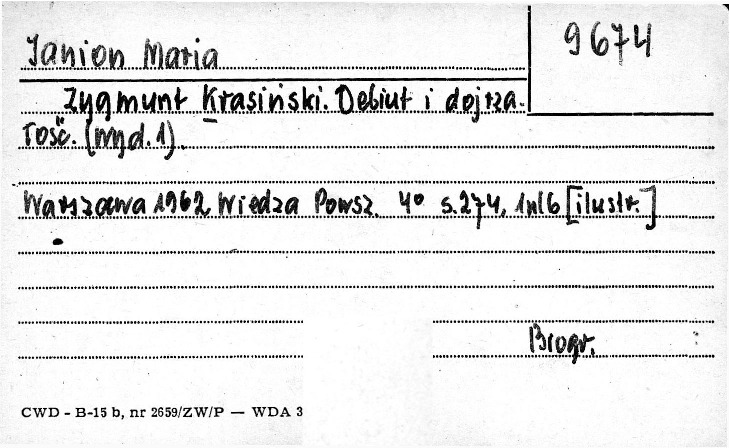 9674
Janion Maria
Zygmunt Krasiński. Debiut i dojrza-
łość. (Wyd. 1).
Warszawa 1962 Wiedza Powsz. 4° s. 274, 1nlb [ilustr.]
Biogr.
CWD - B-15 b, nr 2659/ZW/P — WDA 3